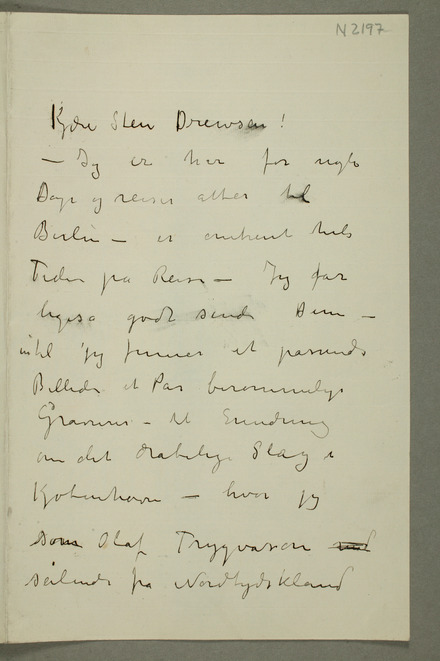 N 2197
Kjære Sten Drewsen!
– Jeg er her for nogle
Dage og reiser atter til
Berlin – er omtrent hele
Tiden på Reise – Jeg får
ligeså godt sende Dem –
indtil jeg finner et passende
Billede et Par berømmelige
Gravurer – til Erindring
om det drabelige Slag i
Kjøbenhavn – hvor jeg
som Olaf Trygvason
seilende fra Nordtydskland